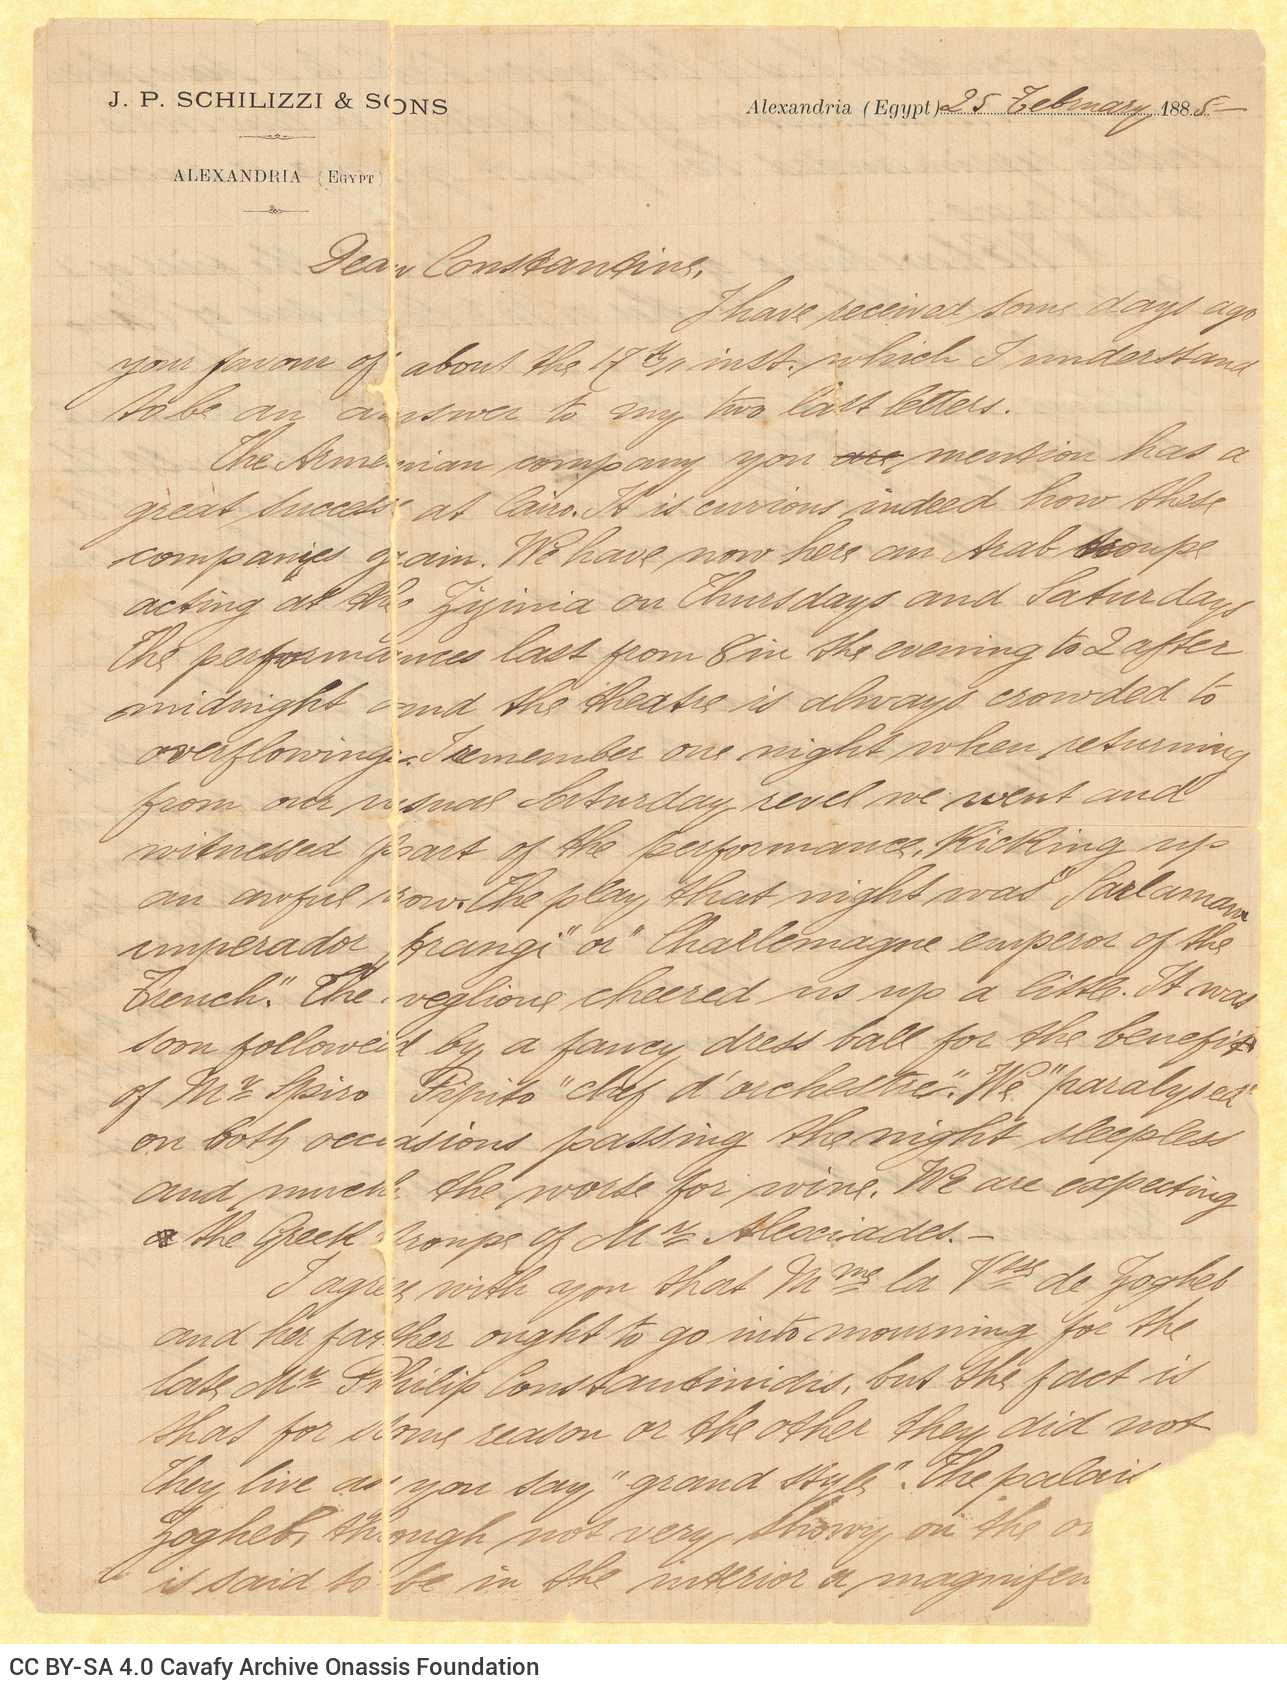 J. P. SCHILIZZI & SONS
Alexandria (Egypt) 25 February 1885
ALEXANDRIA (EGYPT)
Dear Constantine,
I have received some days ago
your favour of about the 17th inst. which I understand
to be an answer to my two last letters.
The Armenian company you are mention has a
great success at Cairo. It is curious indeed how these
companies gain. We have now here an Arab troupe
acting at the Zizinia on Thursdays and Saturdays
The performances last from 8 in the evening to 2 after
midnight and the theatre is always crowded to
overflowing. I remember one night when returning
from our usual Saturday revel we went and
witnessed part of the performance, kicking up
an awful row. The play that night was "Sarlaman
imperador frangi" or "Charlemagne emperor of the
French". The veglione cheered us up a little. It was
soon followed by a fancy dress ball for the benefit
of Mr Spiro Pipito "chef d'orchestre". We "paralysed"
on both occasions passing the night sleepless
and much the worse for wine. We are expecting
the Greek troupe of Mr Alexiades.—
I agree with you that Mme la Vsse de Zogheb
and her father ought to go into mourning for the
late Mr Philip Constantinidis, but the fact is
that for some reason or the other they did not
They live as you say "grand style". The palais
Zogheb, though not very showy on the
is said to be in the interior a magnifen
CC BY-SA 4.0 Cavafy Archive Onassis Foundation